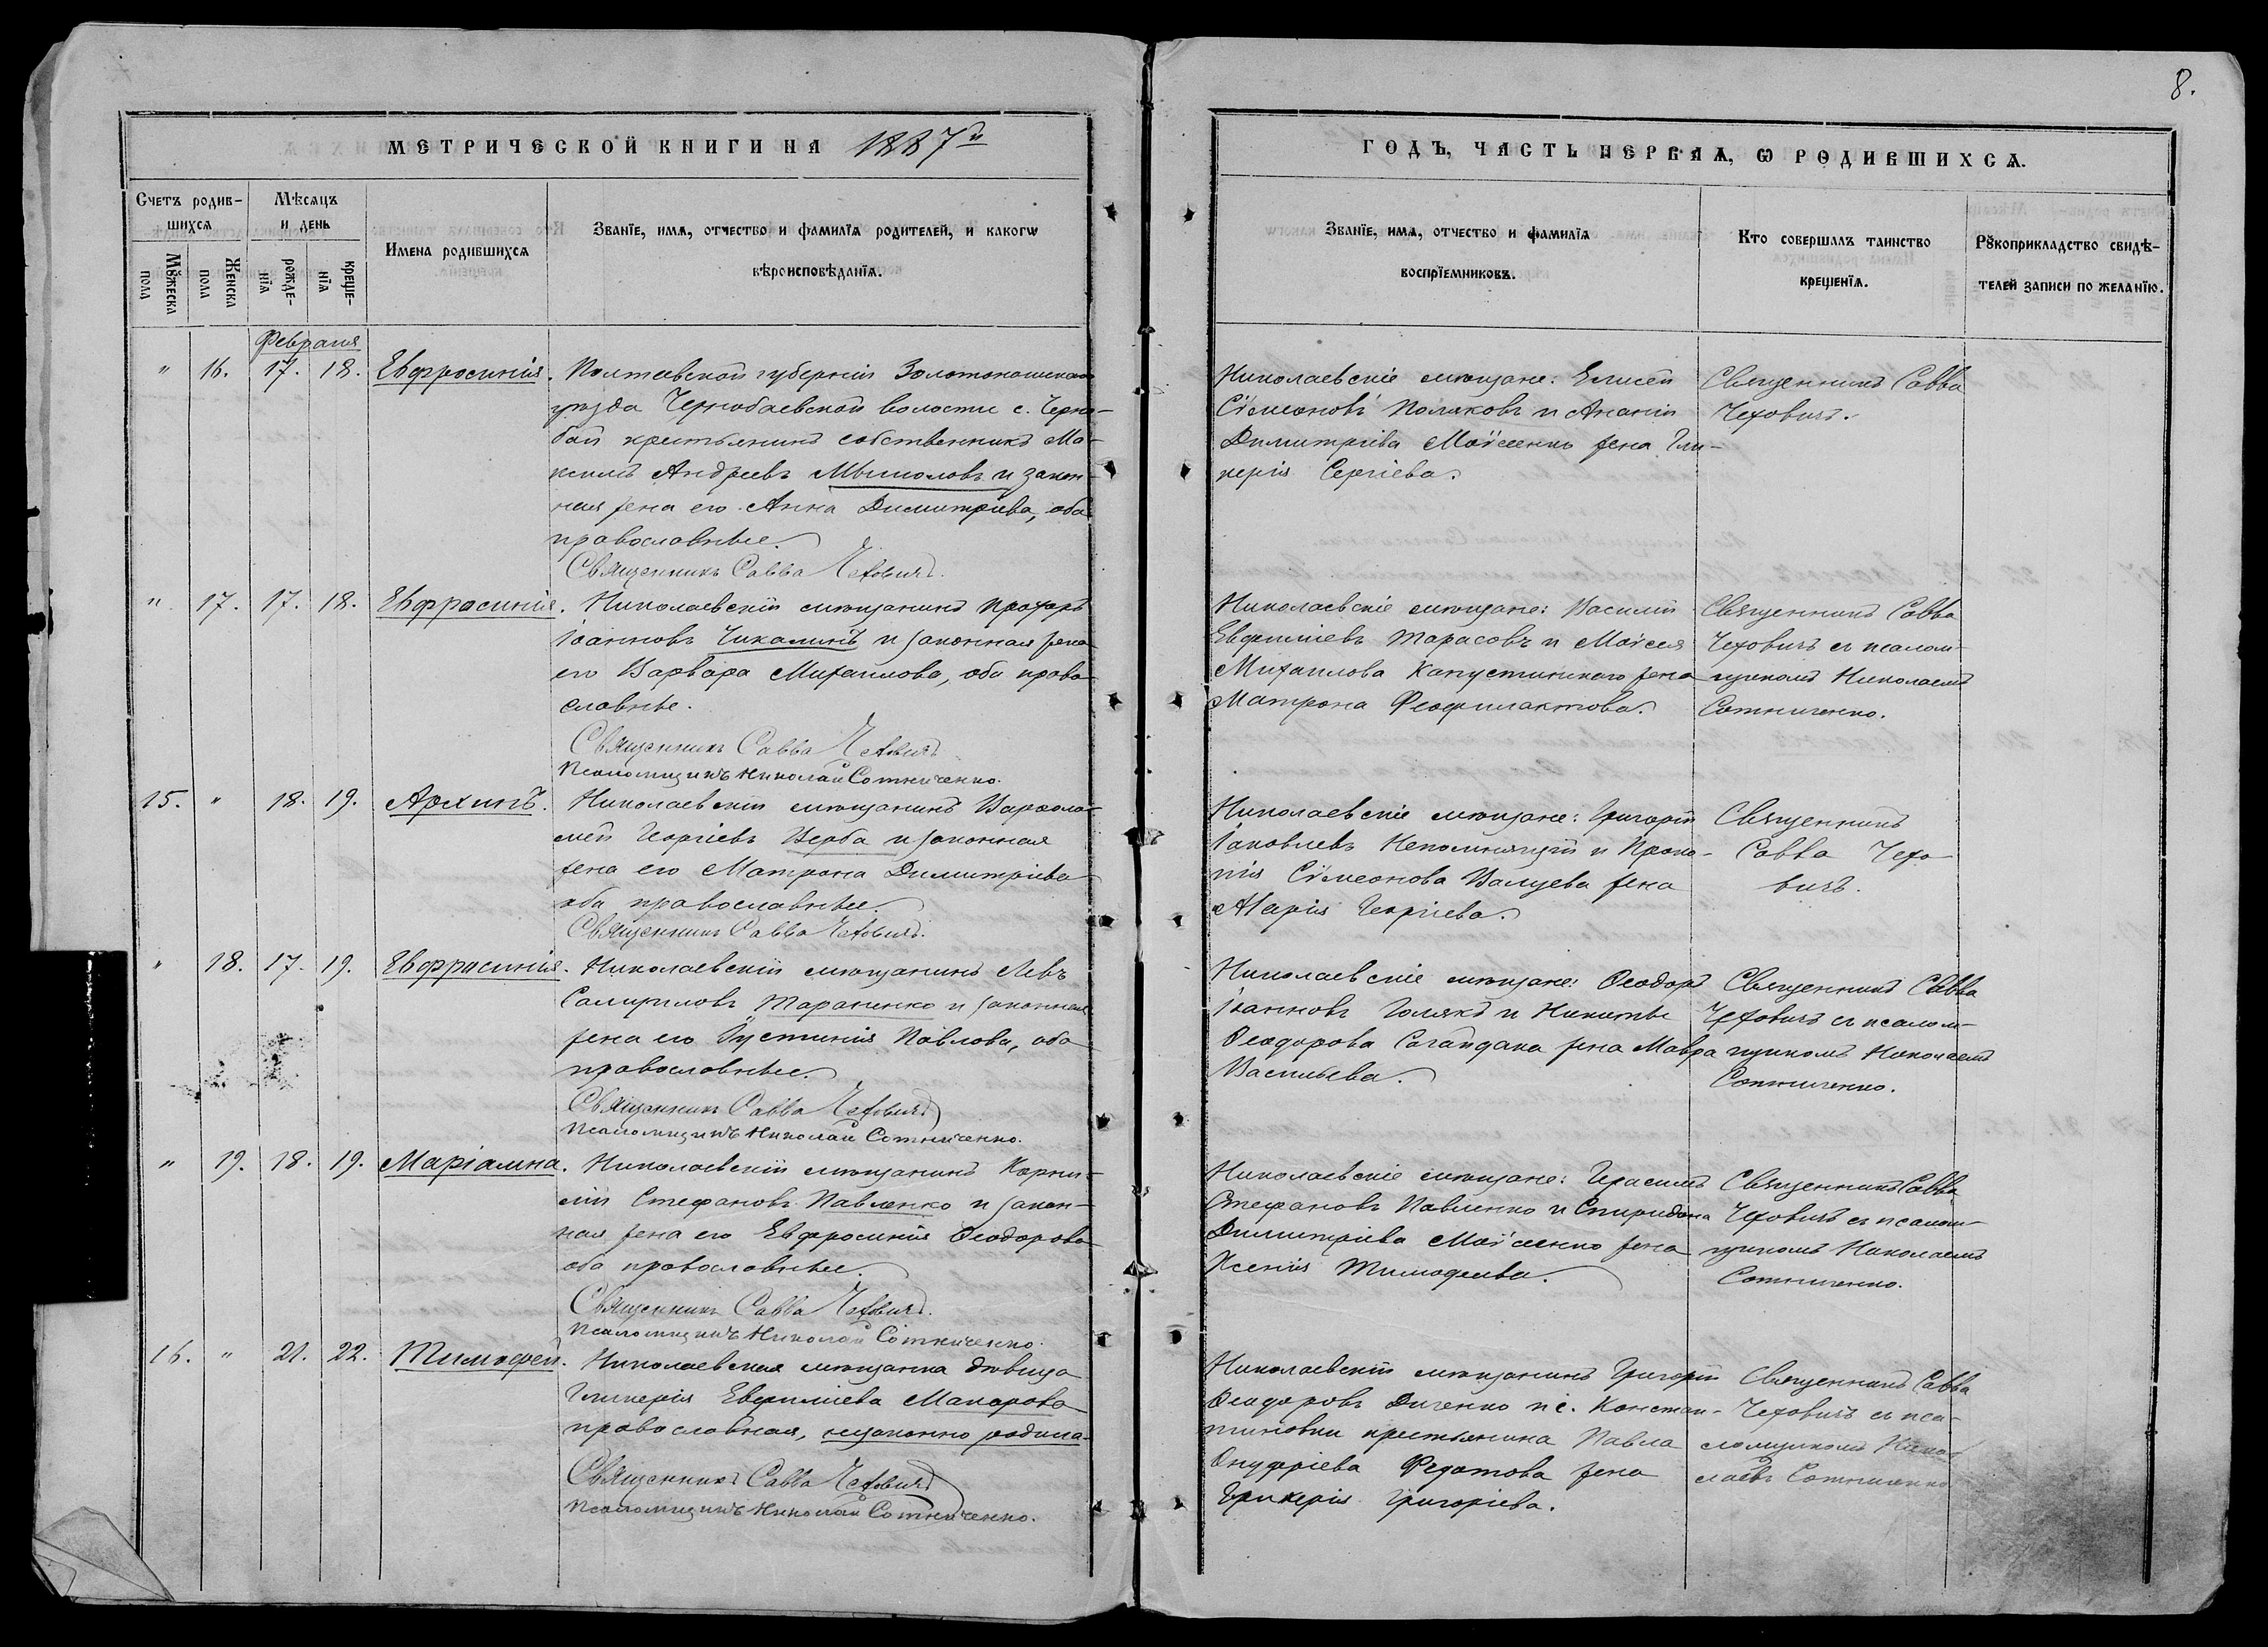 8.
МЕТРИЧЕСКОЙ КНИГИ НА 1887й
ГОДЪ, ЧАСТЬ ПЕРВАѦ, Ѡ РОДИВШИХСѦ.
Счетъ родив-
шихсѧ
Мѣсѧцъ
и день
Мꙋжеска
пола
Женска
пола
рожде-
нїѧ
креще-
нїѧ
Имена родившихсѧ
Званїе, имѧ, отчество и фамилїѧ родителей, и какогѡ
вѣроисповѣданїѧ.
Званїе, имѧ, отчество и фамилїѧ
воспрїемниковъ.
Кто совершалъ таинство
крещенїѧ.
Рꙋкоприкладство свидѣ-
телей записи по желанїю.
Февраля
" 16. 17. 18. Евфросинія.
Полтавской губерніи Золотоношскаго
уѣзда Чернобаевской волости с. Черно-
бай крестьянинъ собственникъ Ма-
ксимъ Андреевъ Мышоловъ и закон-
ная жена его Анна Димитріева, оба
православные.
Священникъ Савва Чеховичъ.
Николаевскіе мѣщане: Елисей
Сімеоновъ Поляковъ и Ананіи
Димитріева Моісеенко жена Гли-
керія Сергіева.
Священникъ Савва
Чеховичъ.
" 17. 17. 18. Евфросинія.
Николаевскій мѣщанинъ Прохоръ
Іоанновъ Чикалинъ и законная жена
его Варвара Михаилова, оба право-
славные.
Священникъ Савва Чеховичъ
Псаломщикъ Николай Сотниченко.
Николаевскіе мѣщане: Василій
Евфиміевъ Тарасовъ и Моісея
Михаилова Капустинскаго жена
Матрона Феофилактова.
Священникъ Савва
Чеховичъ съ псалом-
щикомъ Николаемъ
Сотниченко.
15. " 18. 19. Архипъ.
Николаевскій мѣщанинъ Варфоло-
мей Георгіевъ Верба и законная
жена его Матрона Димитріева
оба православные.
Священникъ Савва Чеховичъ.
Николаевскіе мѣщане: Григорій
Іаковлевъ Непомнящій и Проко-
пія Сімеонова Валуева жена
Марія Георгіева.
Священникъ
Савва Чехо-
вичъ.
" 18. 17. 19. Евфросинія.
Николаевскій мѣщанинъ Левъ
Тараненко и законная
жена его Іустинія Павлова, оба
православные.
Священникъ Савва Чеховичъ
Псаломщикъ Николай Сотниченко.
Николаевскіе мѣщане: Ѳеодоръ
Іоанновъ Голякъ и Никиты
Ѳеодорова Сагайдака жена Мавра
Васильева.
Священникъ Савва
Чеховичъ съ псалом-
щикомъ Николаемъ
Сотниченко.
" 19. 18. 19. Маріамна.
Николаевскій мѣщанинъ Корни-
лій Стефановъ Павленко и закон-
ная жена его Евфросинія Ѳеодорова
оба православные.
Священникъ Савва Чеховичъ.
Псаломщикъ Николай Сотниченко.
Николаевскіе мѣщане: Герасимъ
Стефановъ Павленко и Спиридона
Димитріева Моісеенко жена
Ксенія Тимофеева.
Священникъ Савва
Чеховичъ съ псалом-
щикомъ Николаемъ
Сотниченко.
16. " 21. 22. Тимофей.
Николаевская мѣщанка дѣвица
Гликерія Евфиміева Макарова
православная, незаконно родила.
Священникъ Савва Чеховичъ
Псаломщикъ Николай Сотниченко.
Николаевскій мѣщанинъ Григорій
Ѳеодоровъ Диченко и с. Констан-
тиновки крестьянина Павла
Онуфріева Федотова жена
Гликерія Григоріева.
Священникъ Савва
Чеховичъ съ пса-
ломщикомъ Нико-
лаемъ Сотниченко